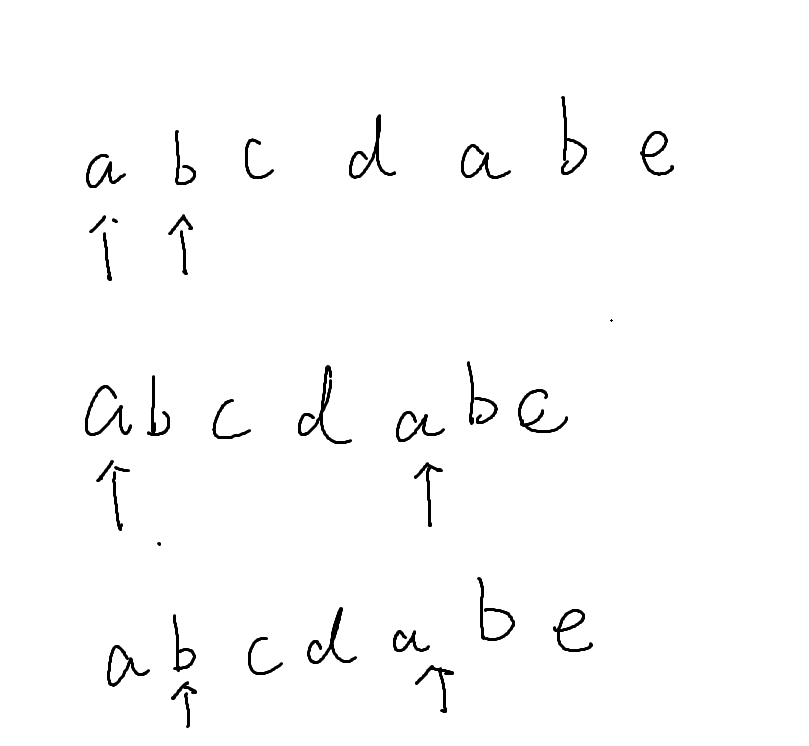 a b c d a b e
↑ ↑
a b c d a b e
↑ ↑
a b c d a b e
↑ ↑